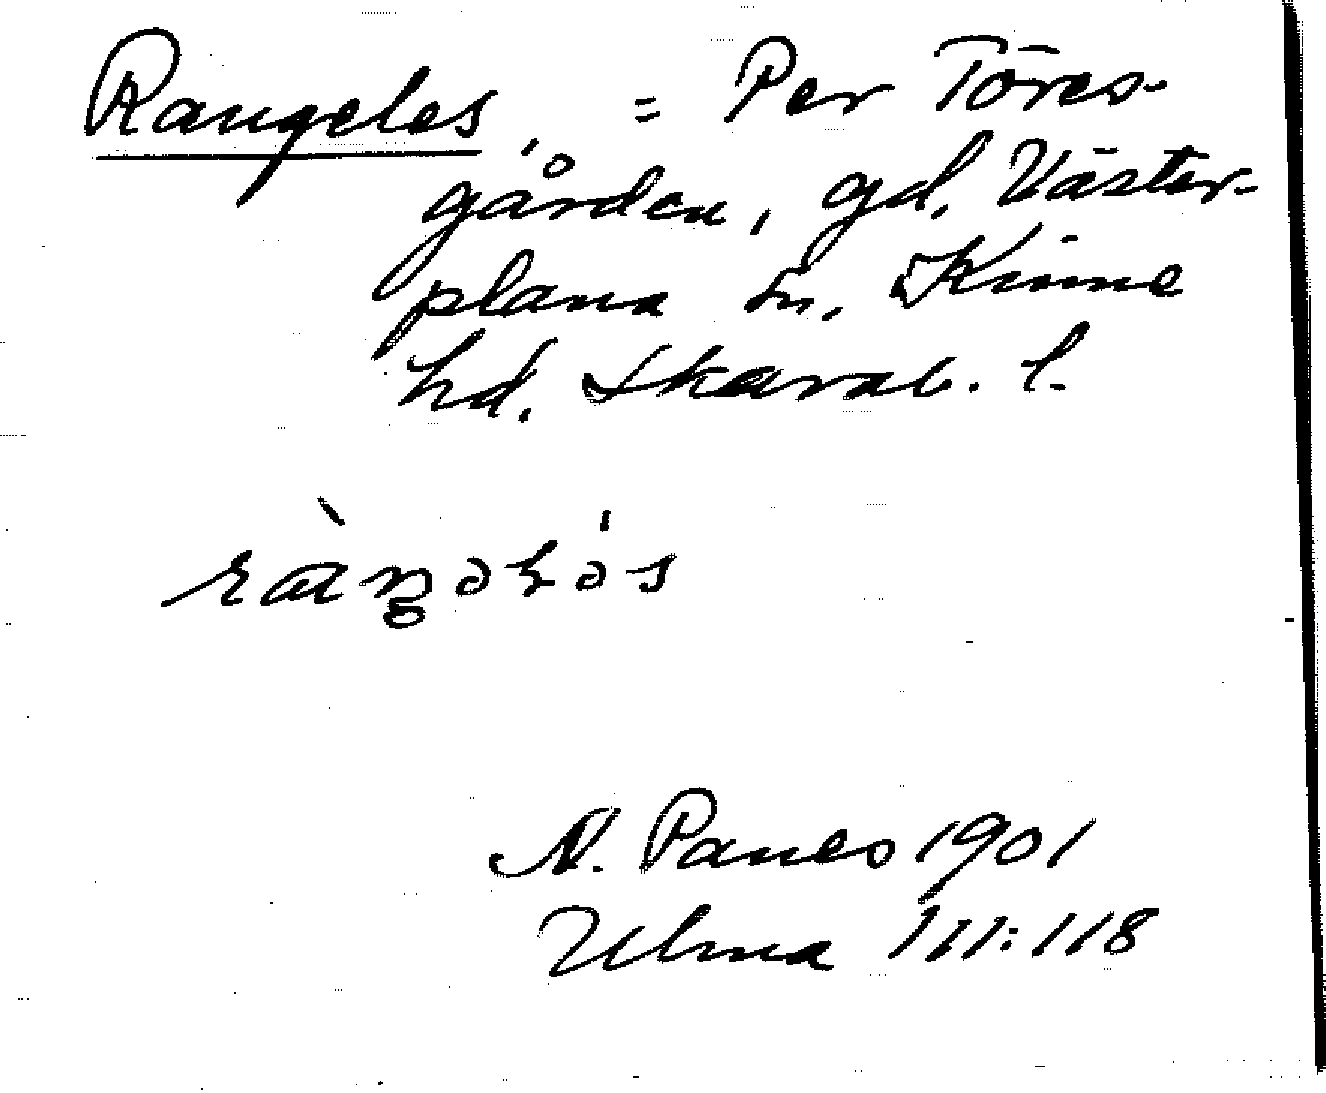 Rangeles, = Per Töres-
gården, gd. Väster-
plana sn. Kinne
hd. Skarab. l.
N. Paneo 1901
Ulma 111:118